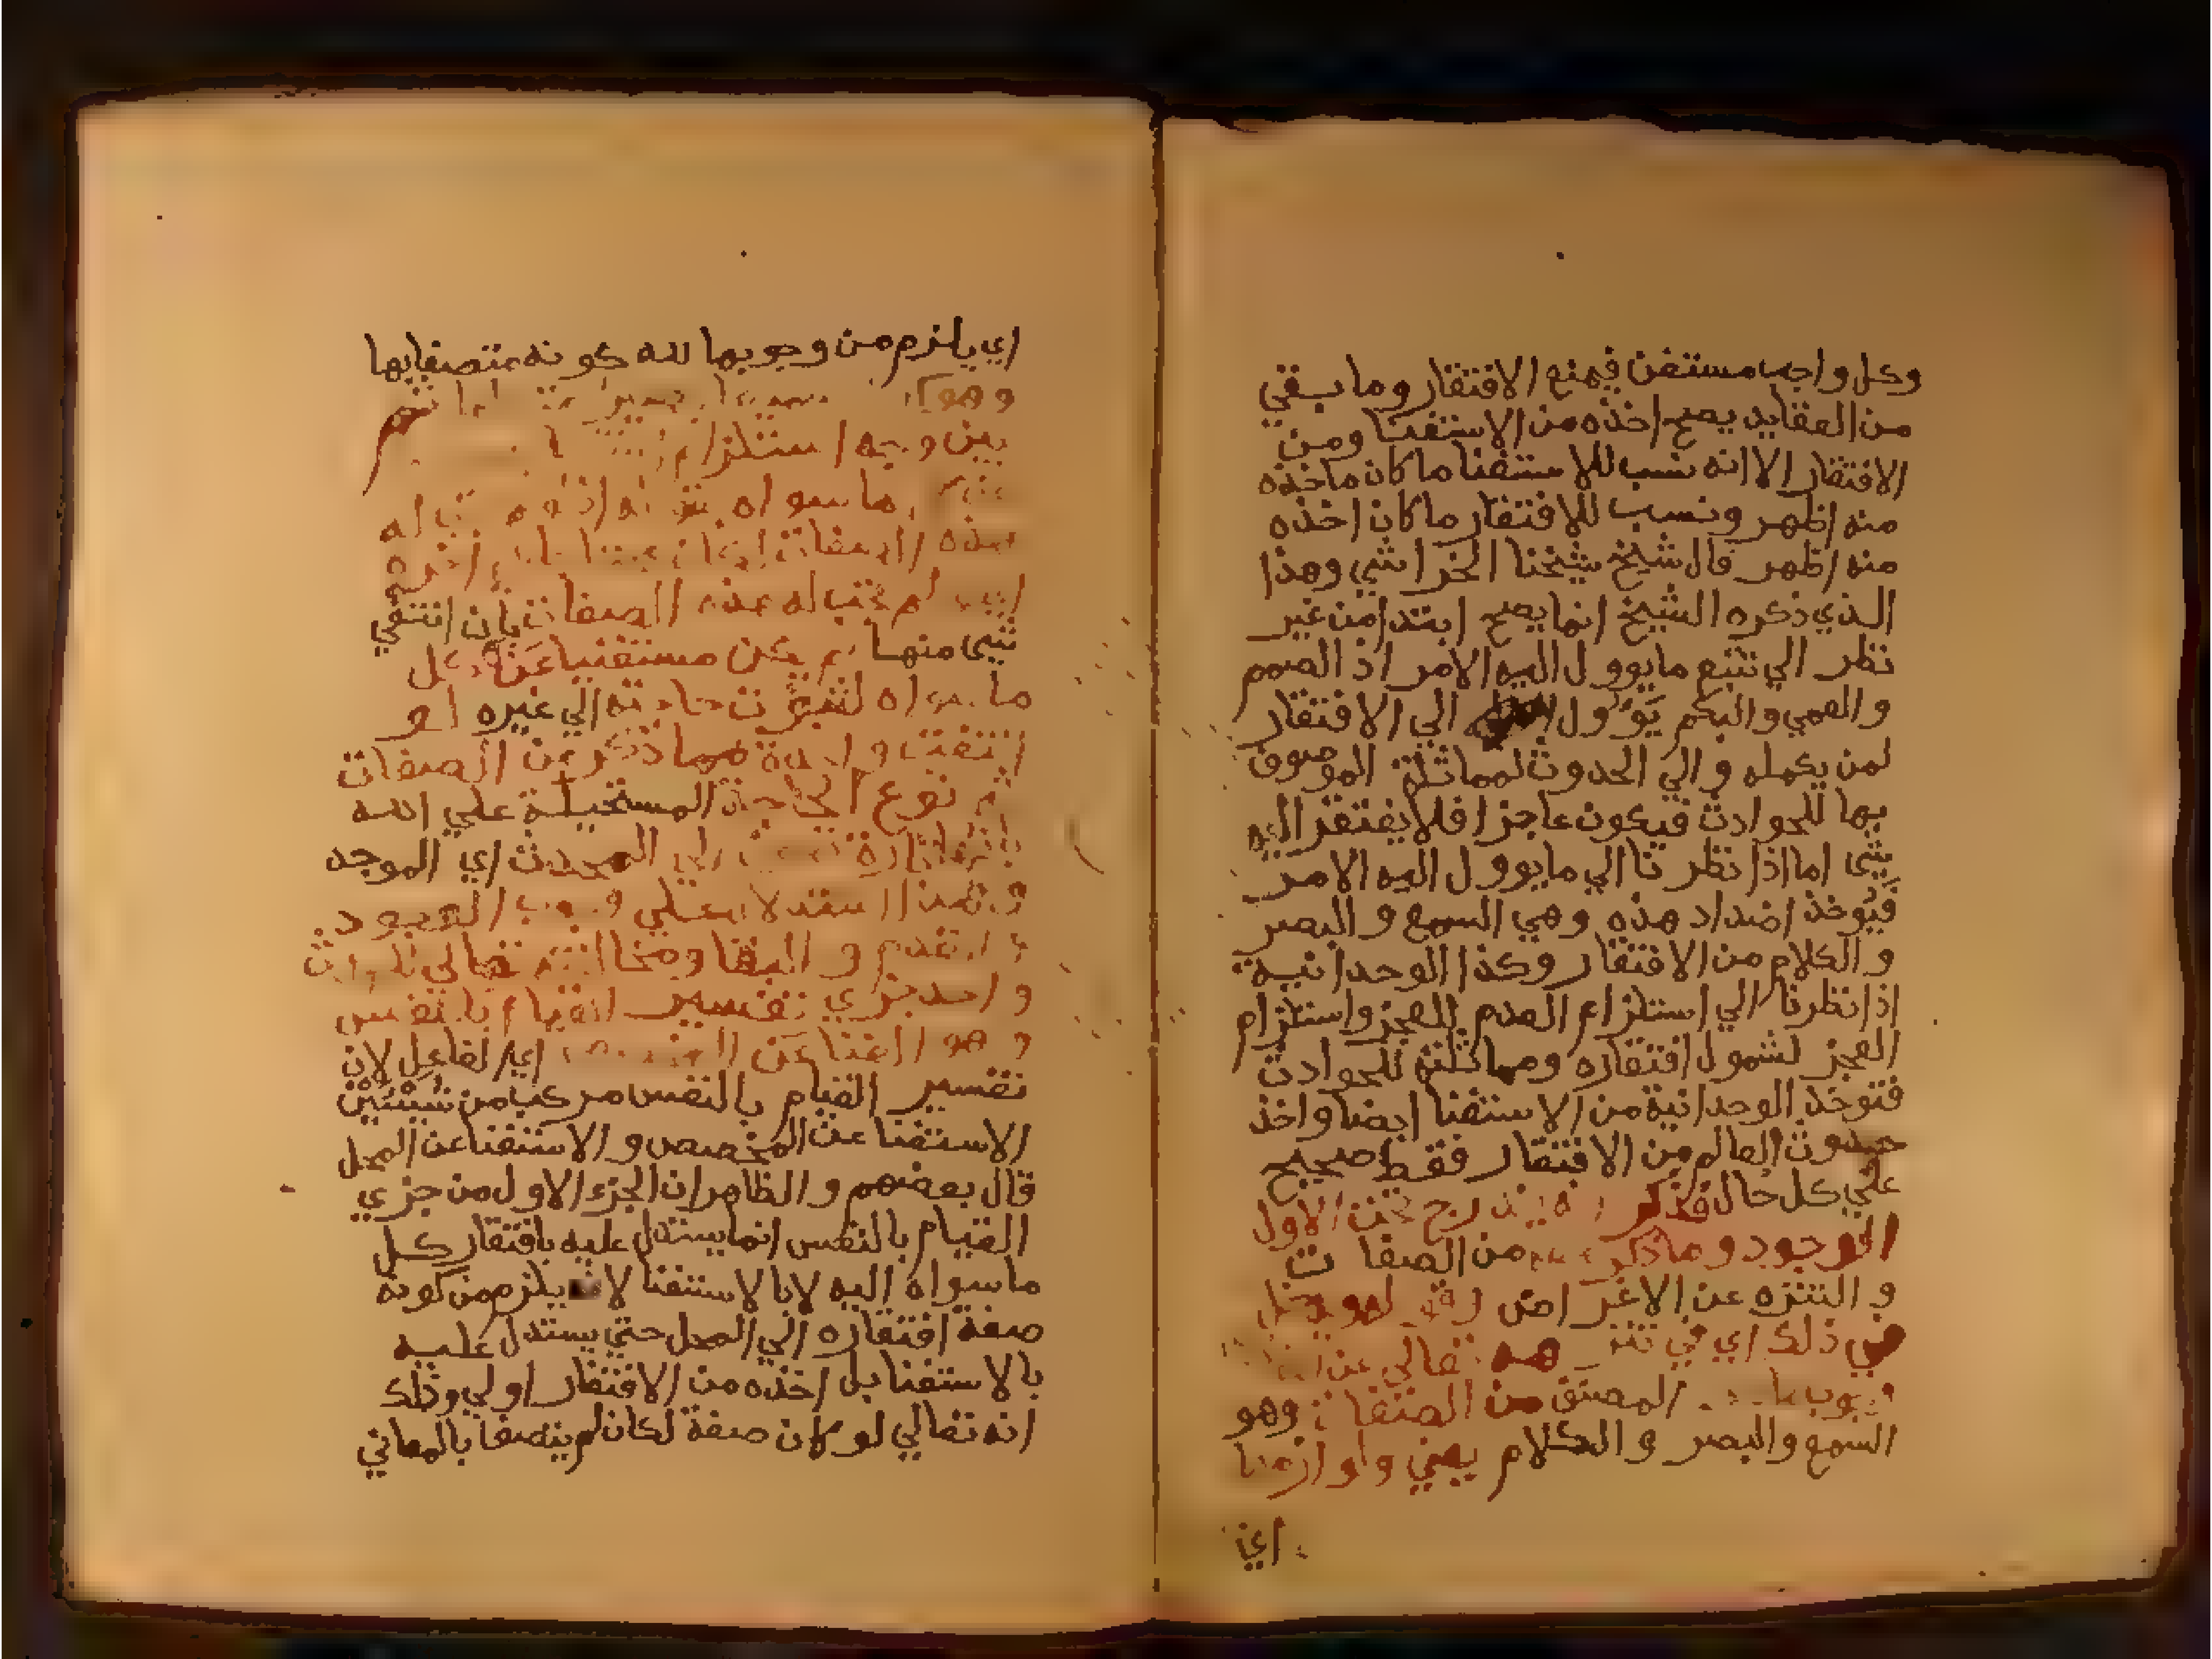 وكل واجب مستغن فيمنع الافتقار وما بقي
من العقايد يصح اخذه من الاستغنا ومن
الافتقار الا انه نسب للاستغنا ما كان ماخذه
منه اظهر ونسب للافتقار ما كان اخذه
منه اظهر قال شيخ شيخنا الخراشي وهذا
الذي ذكره الشيخ انما يصح ابتدا من غير
نظر الي تتبع ما يوول اليه الامر اذ الصمم
والعمي والبكم يؤول الي الافتقار
لمن يكمله والي الحدوث لمماثلة الموصوف
بها للحوادث فيكون عاجزا فلا يفتقر اليه
شي اما اذا نظرنا الي ما يوول اليه الامر
فيؤخذ اضداد هذه وهي السمع والبصر
والكلام من الافتقار وكذا الوحدانية
اذا نظرنا الي استلزام العدم للعجز واستلزام
العجز لشمول افتقاره ومماثلته للحوادث
فتوخذ الوحدانية من الاستغنا ايضا واخذ
حدوث العالم من الافتقار فقط صحيح
علي كل حال فذكر يندرج تحت الاول
الوجود وما ذكر من الصفات
والتنزه عن الاغراض
في ذلك اي في تعالي عن
المصنف من الصفات وهو
السمع والبصر والكلام يعني ولوازمها
اي
اي يلزم من وجوبها لله كونه متصفا بها
وهو ثم
بين وجه استلزام
ما سواه له
هذه الصفات اخره
لم تجب له هذه الصفات بان انتفي
شي منها لم يكن مستغنيا عن كل
ما سواه لثبوت حاجته الي غيره لو
انتفت واحدة مما ذكر من الصفات
ثم نوع الحاجة المستحيلة علي الله
الي المحدث اي الموجد
وهذا استدلال علي وجوب الوجود
والقدم والبقا ومخالفته تعالي للحوادث
واحد جزي تفسير القيام بالنفس
وهو الغنا عن المخصص اي الفاعل لان
تفسير القيام بالنفس مركب من شيئين
الاستغنا عن المخصص والاستغنا عن المحل
قال بعضهم والظاهر ان الجزء الاول من جزي
القيام بالنفس انما يستدل عليه بافتقار كل
ما سواه اليه لا بالاستغنا لانه يلزم من كونه
صفة افتقاره الي المحل حتي يستدل عليه
بالاستغنا بل اخذه من الافتقار اولي وذلك
انه تعالي لو كان صفة لكان لم يتصف بالمعاني